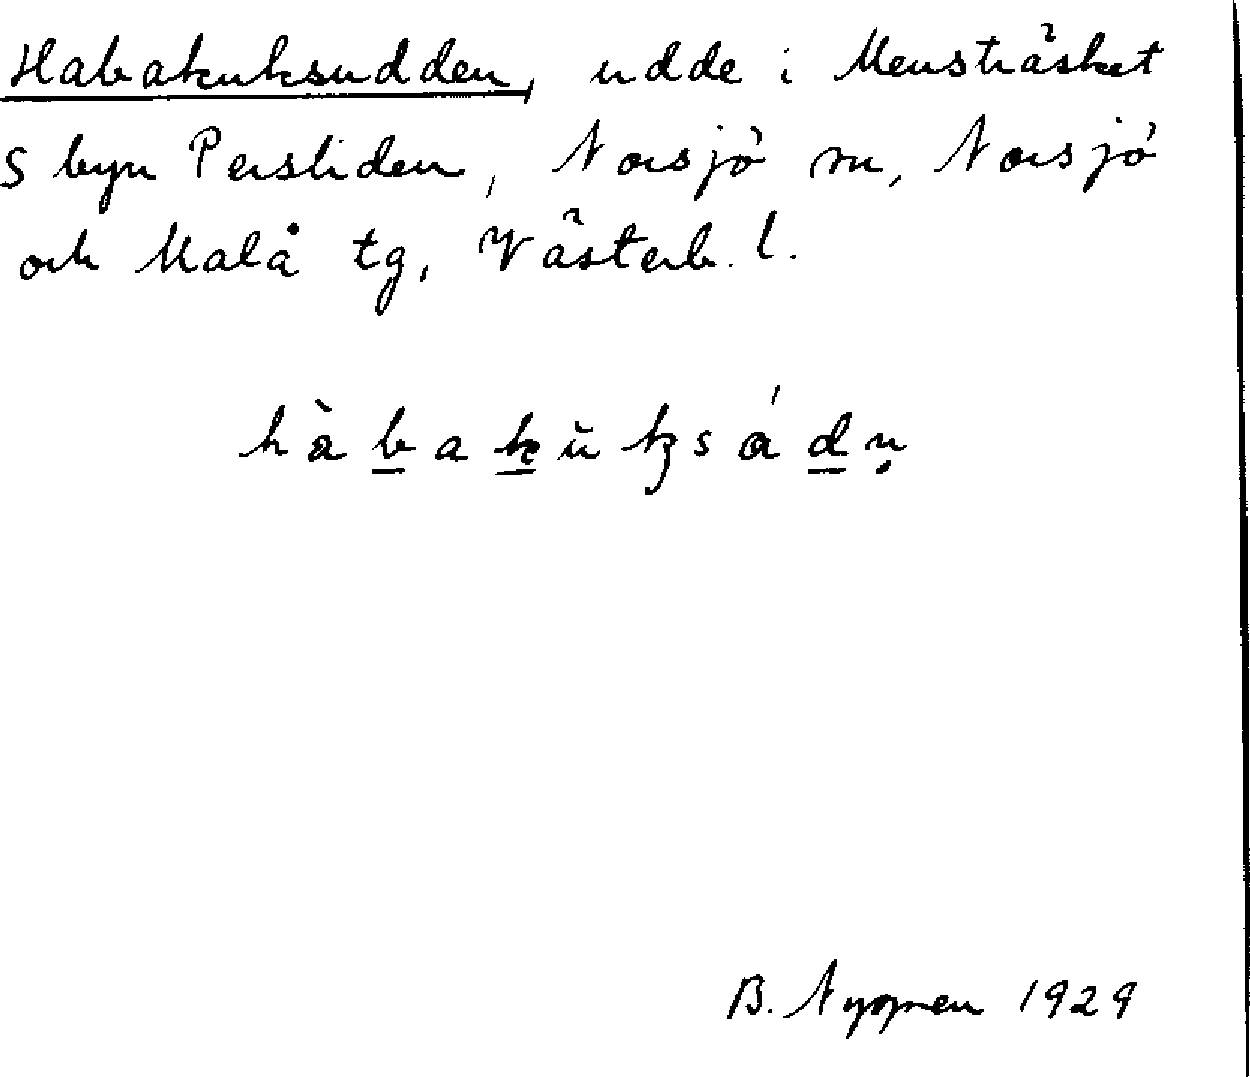 Habakuksudden, udde i Mensträsket
S byn Persliden, Norsjö sn, Norsjö
och Malå tg, Västerb. l.
hàbakŭksádṇ
B. Nyomen 1929